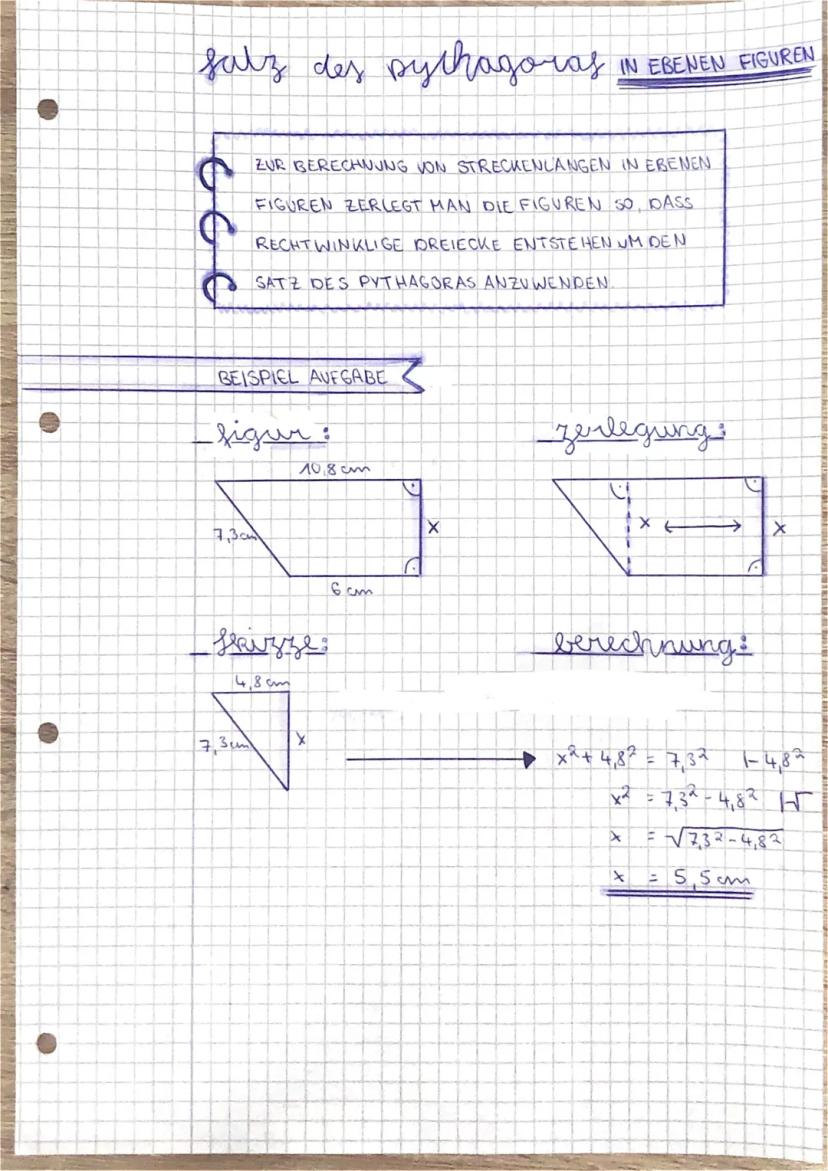 satz des pythagoras IN EBENEN FIGUREN
ZUR BERECHNUNG VON STRECKENLÄNGEN IN EBENEN
FIGUREN ZERLEGT MAN DIE FIGUREN SO, DASS
RECHTWINKLIGE DREIECKE ENTSTEHEN UM DEN
SATZ DES PYTHAGORAS ANZUWENDEN.
BEISPIEL AUFGABE
figur:
zerlegung:
10,8 cm
7,3 cm
x
6 cm
x
x
skizze:
berechnung:
4,8 cm
7,3 cm
x
x² + 4,8² = 7,3² |- 4,8²
x² = 7,3² - 4,8² |√
x = √7,3² - 4,8²
x = 5,5 cm